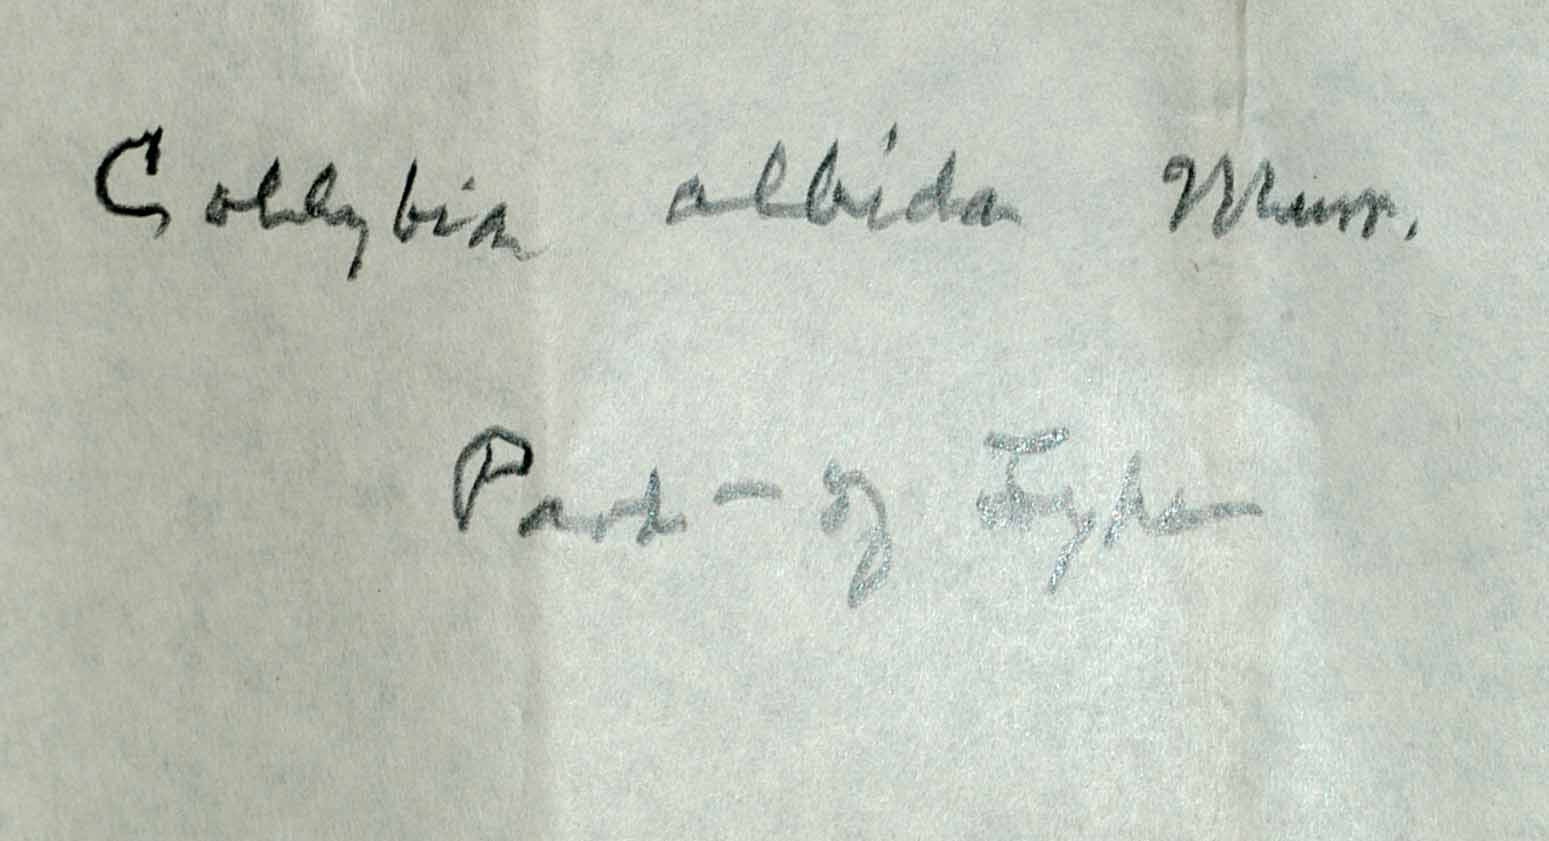 Collybia albida Murr.
Part - of Type